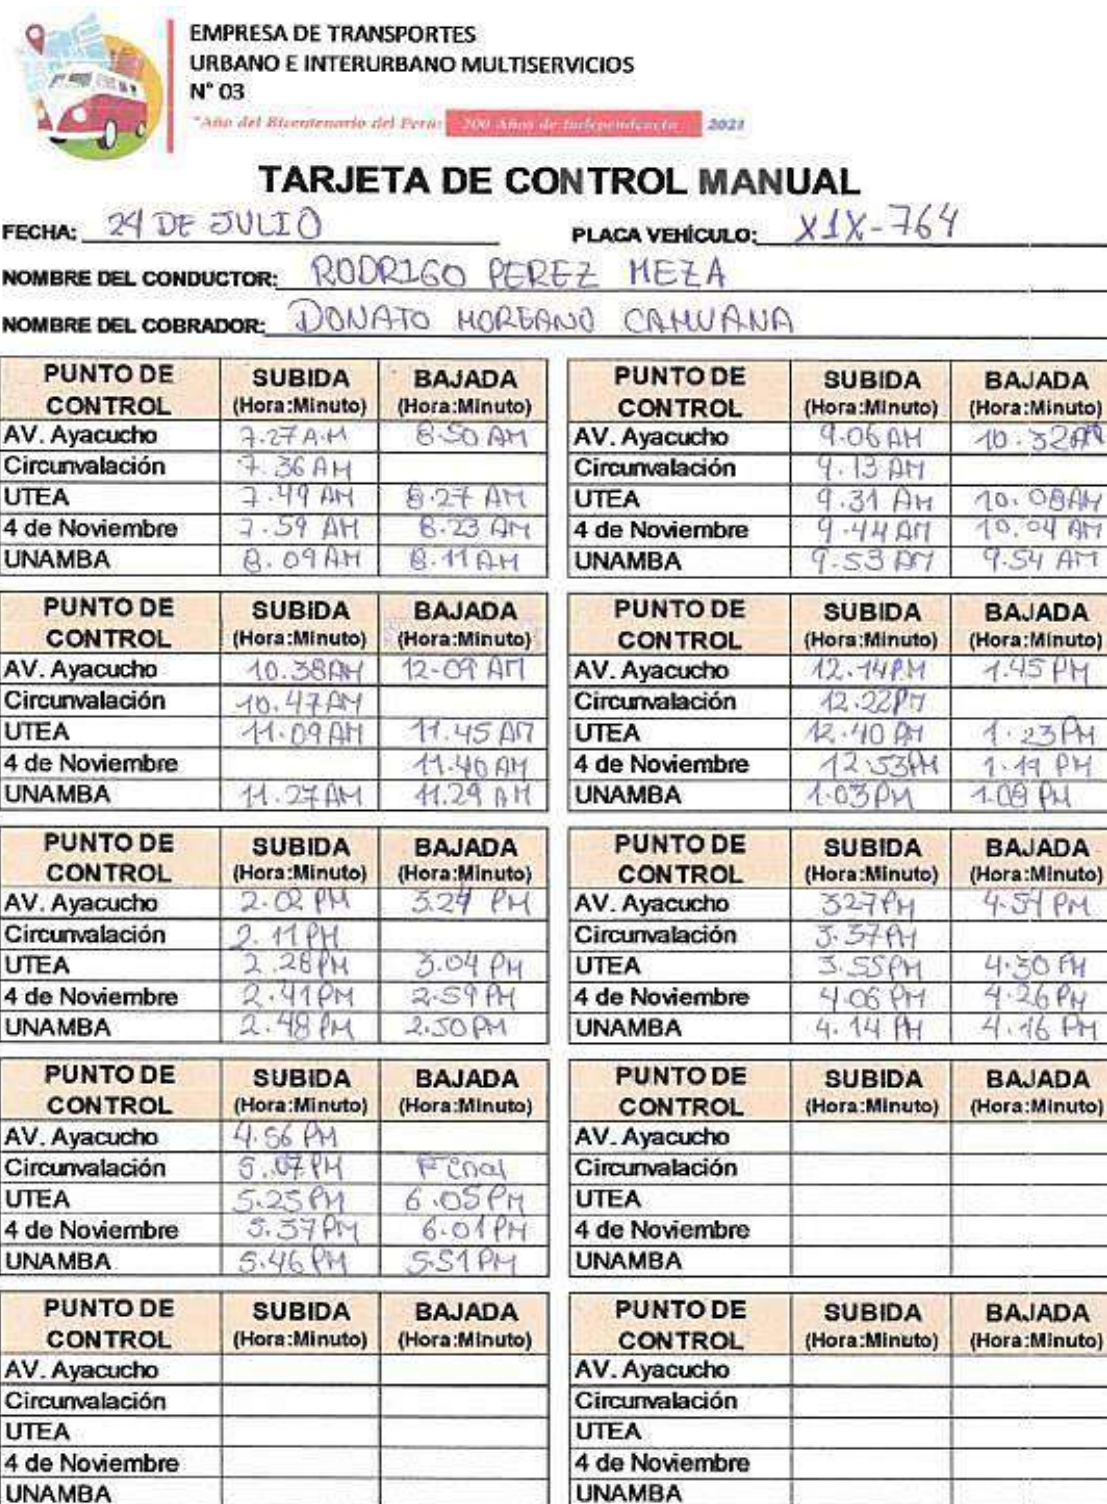 EMPRESA DE TRANSPORTES
URBANO E INTERURBANO MULTISERVICIOS
N° 03
"Año del Bicentenario del Perú: 200 Años de Independencia 2021
TARJETA DE CONTROL MANUAL
FECHA: 24 DE JULIO PLACA VEHÍCULO: X1X-764
NOMBRE DEL CONDUCTOR: RODRIGO PEREZ MEZA
NOMBRE DEL COBRADOR: DONATO MOREANO CAHUANA
PUNTO DE CONTROL SUBIDA (Hora:Minuto) BAJADA (Hora:Minuto)
AV. Ayacucho 7.27 A.M 8.50 AM
Circunvalación 7.36 AM
UTEA 7.49 AM 8.27 AM
4 de Noviembre 7.59 AM 8.23 AM
UNAMBA 8.09 AM 8.11 AM
PUNTO DE CONTROL SUBIDA (Hora:Minuto) BAJADA (Hora:Minuto)
AV. Ayacucho 9.06 AM 10.32 AM
Circunvalación 9.13 AM
UTEA 9.31 AM 10.08 AM
4 de Noviembre 9.44 AM 10.04 AM
UNAMBA 9.53 AM 9.54 AM
PUNTO DE CONTROL SUBIDA (Hora:Minuto) BAJADA (Hora:Minuto)
AV. Ayacucho 10.38 AM 12-09 AM
Circunvalación 10.47 AM
UTEA 11.09 AM 11.45 AM
4 de Noviembre 11.40 AM
UNAMBA 11.27 AM 11.29 AM
PUNTO DE CONTROL SUBIDA (Hora:Minuto) BAJADA (Hora:Minuto)
AV. Ayacucho 12.14 P.M 1.45 PM
Circunvalación 12.22 PM
UTEA 12.40 PM 1.23 PM
4 de Noviembre 12.53 PM 1.19 PM
UNAMBA 1.03 PM 1.09 PM
PUNTO DE CONTROL SUBIDA (Hora:Minuto) BAJADA (Hora:Minuto)
AV. Ayacucho 2.02 PM 3.24 PM
Circunvalación 2.11 PM
UTEA 2.28 PM 3.04 PM
4 de Noviembre 2.41 PM 2.59 PM
UNAMBA 2.48 PM 2.50 PM
PUNTO DE CONTROL SUBIDA (Hora:Minuto) BAJADA (Hora:Minuto)
AV. Ayacucho 3 27 PM 4.51 PM
Circunvalación 3.37 PM
UTEA 3.55 PM 4.30 PM
4 de Noviembre 4.06 PM 4.26 PM
UNAMBA 4.14 PM 4.16 PM
PUNTO DE CONTROL SUBIDA (Hora:Minuto) BAJADA (Hora:Minuto)
AV. Ayacucho 4.56 PM
Circunvalación 5.07 PM Final
UTEA 5.25 PM 6.05 PM
4 de Noviembre 5.37 PM 6.01 PM
UNAMBA 5.46 PM 5.51 PM
PUNTO DE CONTROL SUBIDA (Hora:Minuto) BAJADA (Hora:Minuto)
AV. Ayacucho
Circunvalación
UTEA
4 de Noviembre
UNAMBA
PUNTO DE CONTROL SUBIDA (Hora:Minuto) BAJADA (Hora:Minuto)
AV. Ayacucho
Circunvalación
UTEA
4 de Noviembre
UNAMBA
PUNTO DE CONTROL SUBIDA (Hora:Minuto) BAJADA (Hora:Minuto)
AV. Ayacucho
Circunvalación
UTEA
4 de Noviembre
UNAMBA